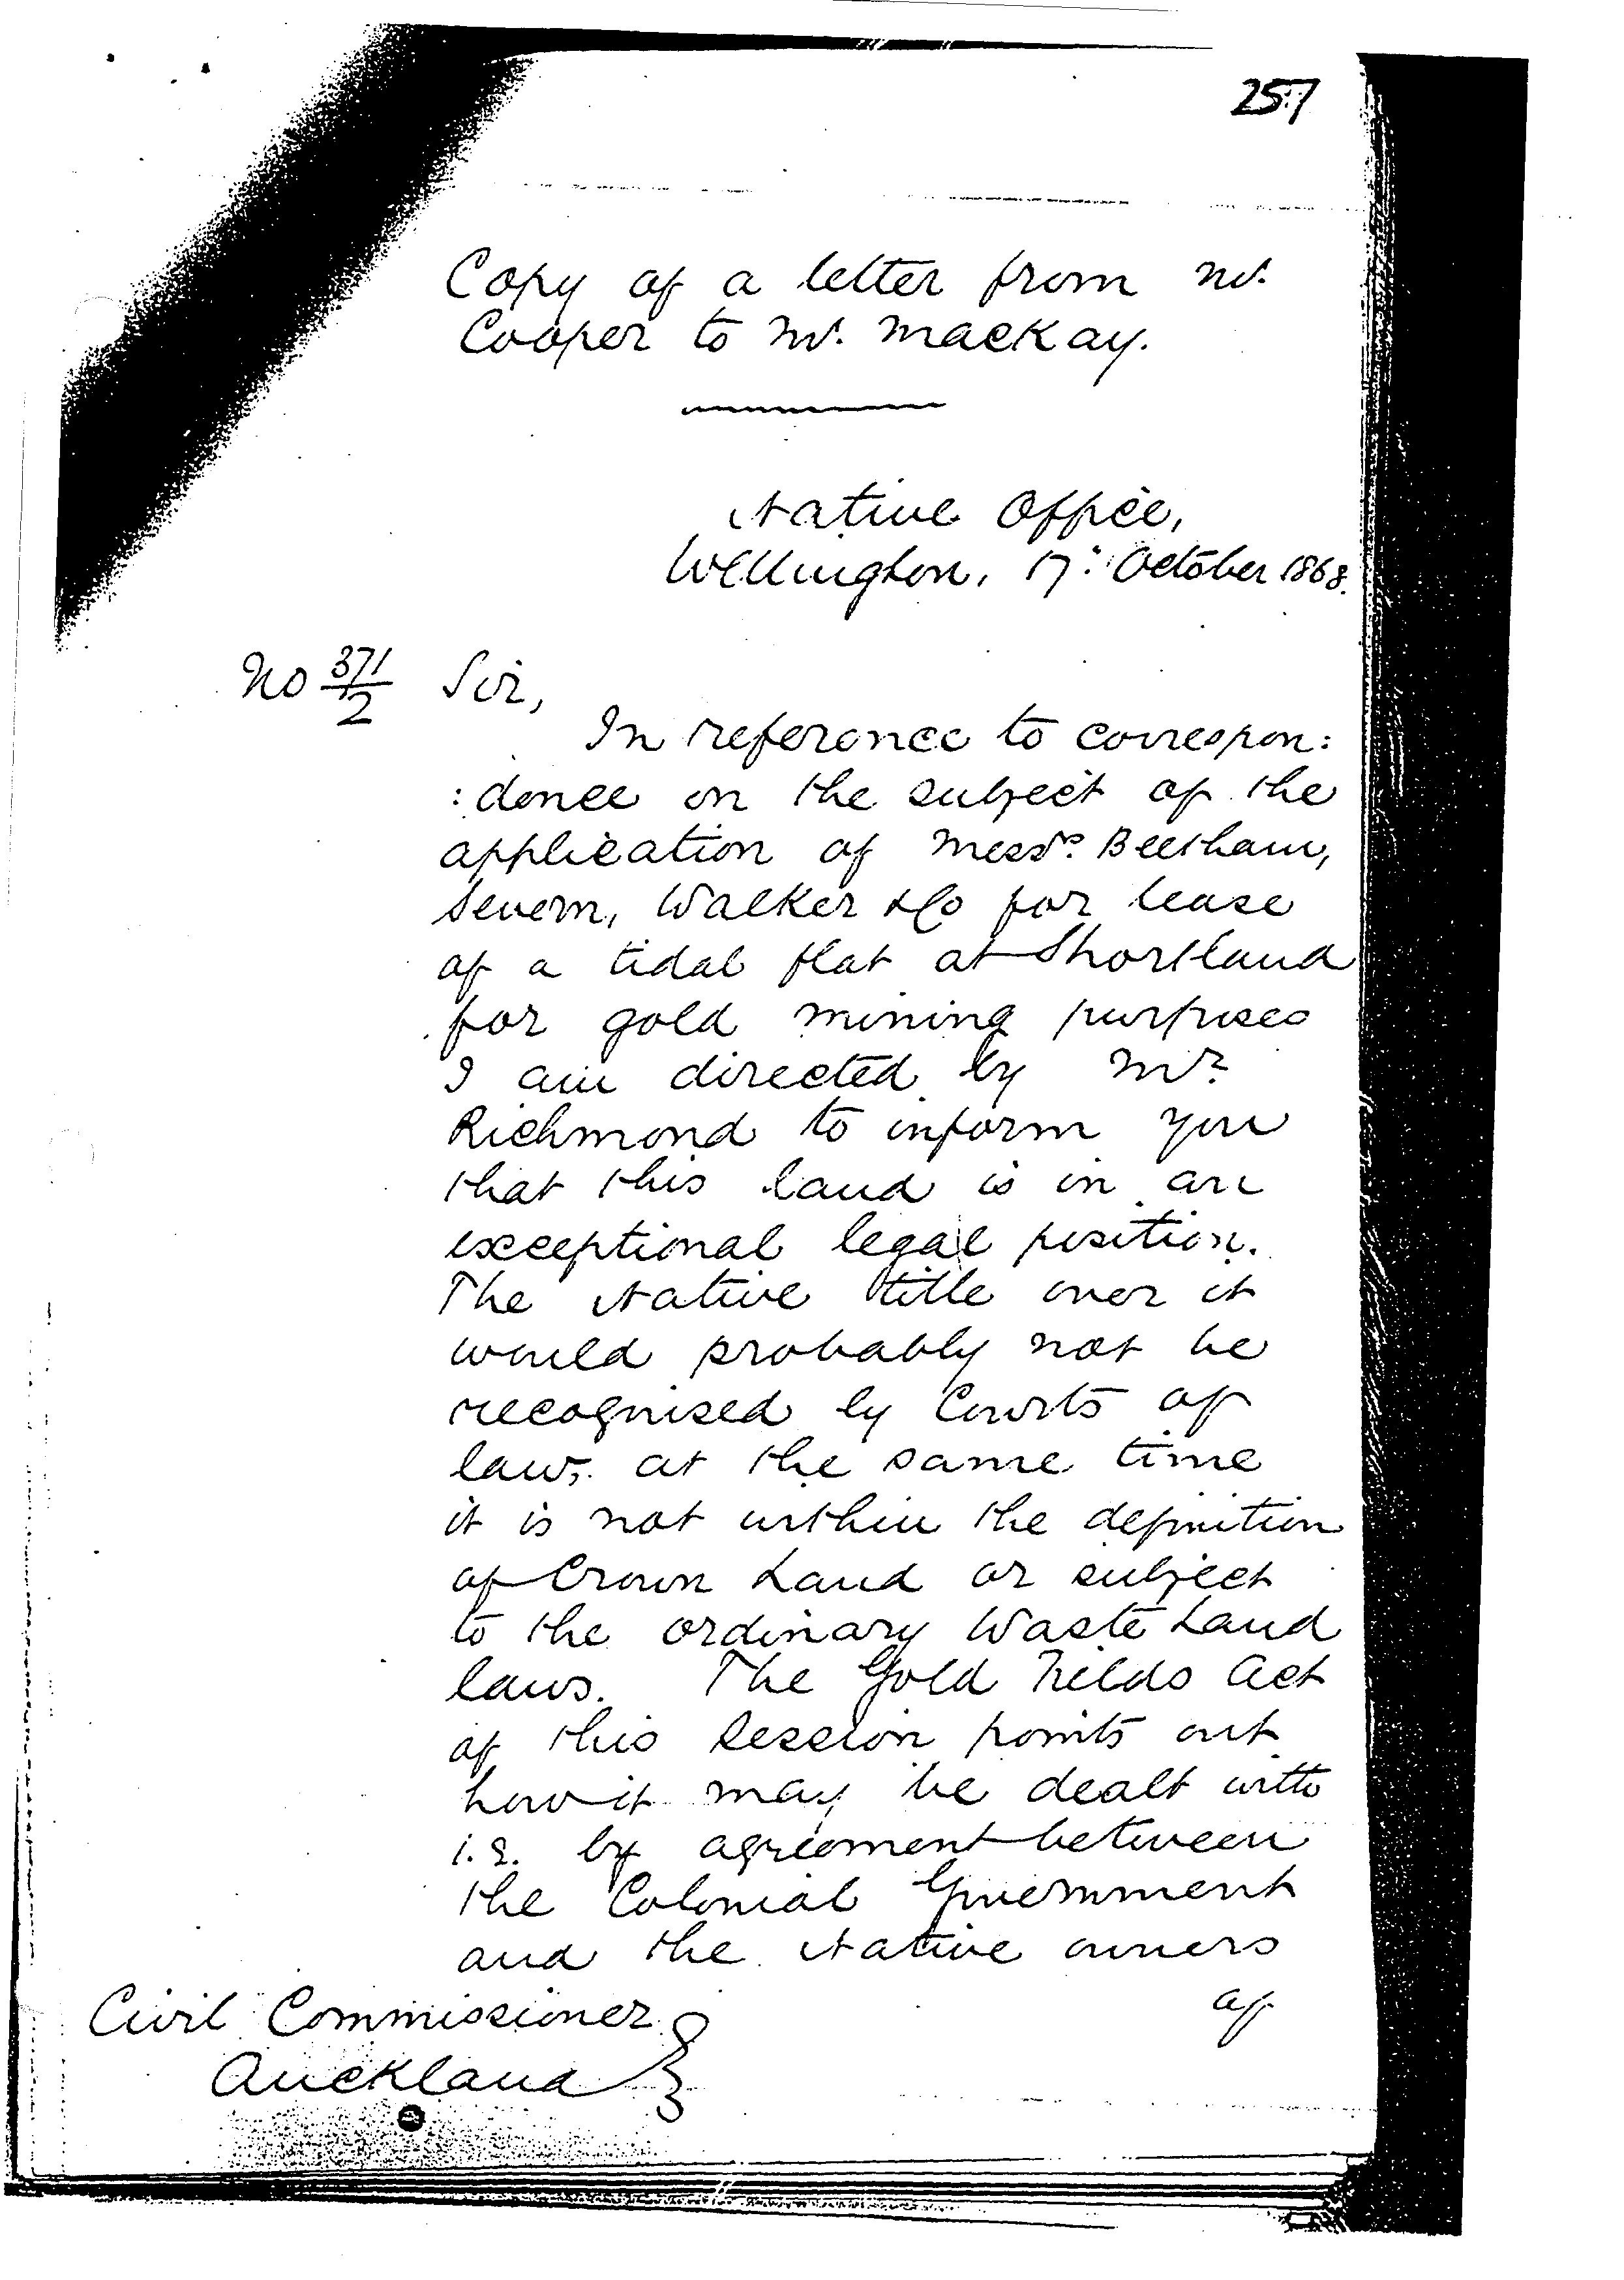 257
Copy of a letter from Mr.
Cooper to Mr. Mackay.
Native Office,
Wellington, 17: October 1868.
No 371/2 Sir,
In reference to correspon:
:dence on the subject of the
application of Messrs. Beetham,
Severn, Walker &Co for lease
of a tidal flat at Shortland
for gold mining purposes
I am directed by Mr.
Richmond to inform you
that this land is in an
exceptional legal position.
The Native title over it
would probably not be
recognised by Courts of
law; at the same time
it is not within the definition
of Crown Land or subject
to the ordinary Waste Land
laws. The Gold Fields Act
of this Session points out
how it may be dealt with
i.e. by agreement between
the Colonial Government
and the Native owners
of
Civil Commissioner
Auckland